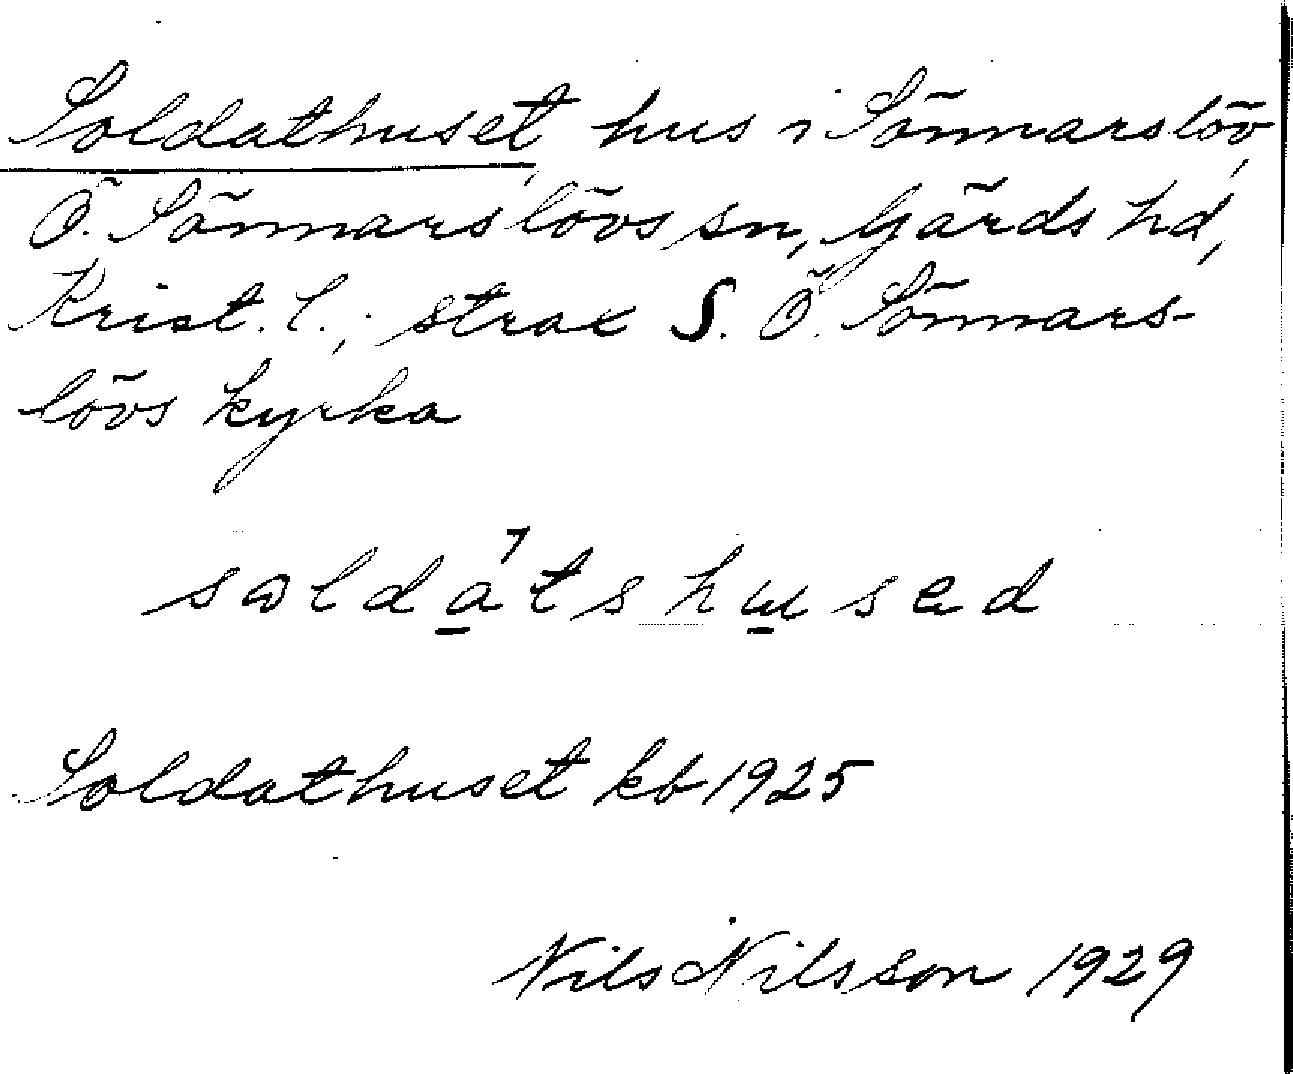 Soldathuset, hus i Sönnarslöv,
Ö. Sönnarslövs sn, Gärds hd,
Krist. l.; strax S. Ö. Sönnars-
lövs kyrka
soldátshused
Soldathuset kb 1925
Nils Nilsson 1929